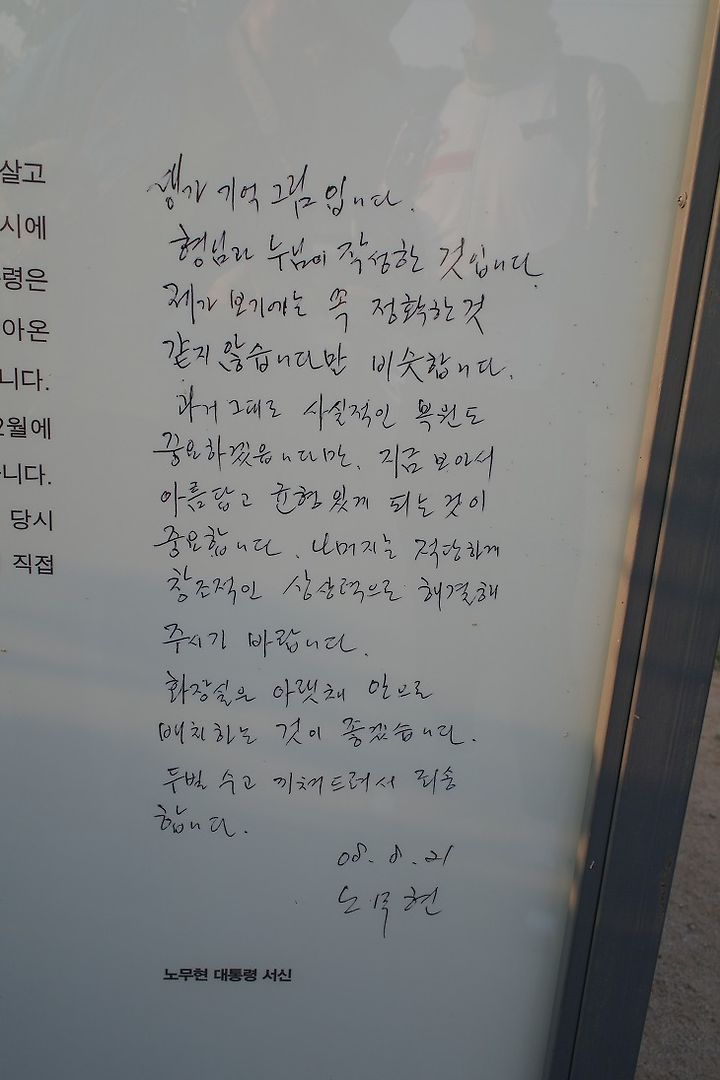 살고
시에
령은
아온
니다.
2월에
니다.
당시
직접
생가 기억 그림 입니다.
형님과 누님이 작성한 것입니다.
제가 보기에는 꼭 정확한 것
같지 않습니다만 비슷합니다.
과거 그대로 사실적인 복원도
중요하겠읍니다만, 지금 보아서
아름답고 균형있게 되는 것이
중요합니다. 나머지는 적당하게
창조적인 상상력으로 해결해
주시기 바랍니다.
화장실은 아랫채 안으로
배치하는 것이 좋겠습니다.
두벌 수고 끼쳐드려서 죄송
합니다.
08. 8. 21
노무현
노무현 대통령 서신